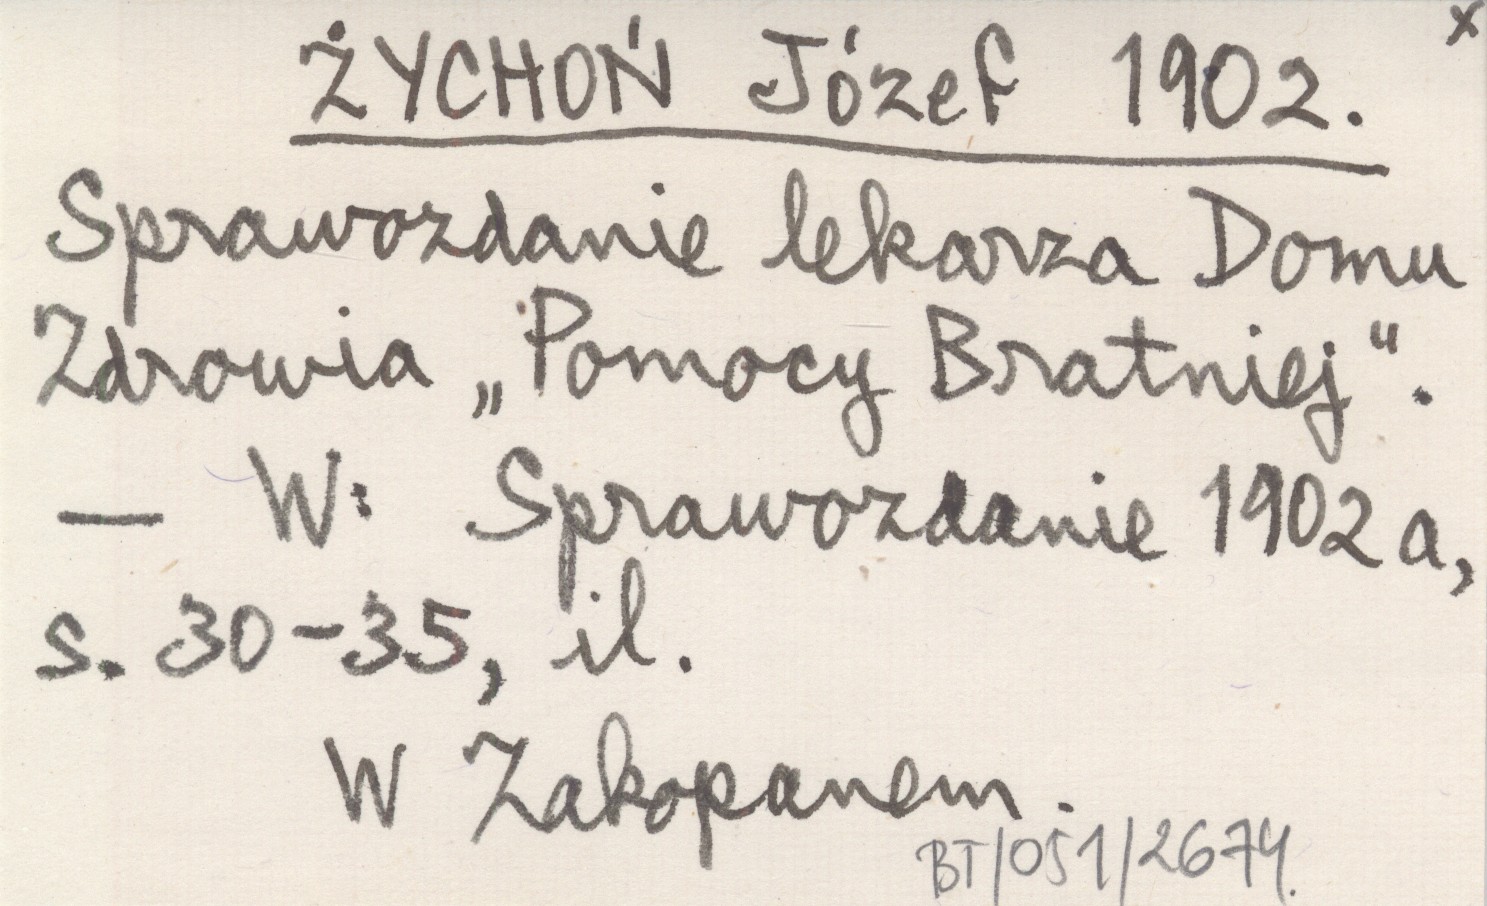 x
ŻYCHOŃ Józef 1902.
Sprawozdanie lekarza Domu
Zdrowia „Pomocy Bratniej“.
— W: Sprawozdanie 1902 a,
s. 30-35, il.
W Zakopanem.
BT/051/2674.